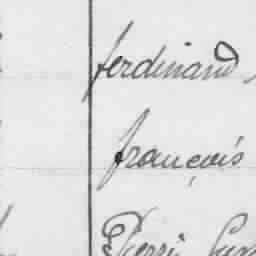 ferdinand,
françois
Pierri